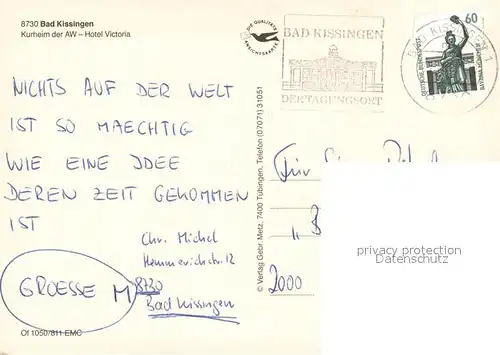 8730 Bad Kissingen
Kurheim der AW – Hotel Victoria
DIE QUALITÄTS
ANSICHTSKARTE
BAD KISSINGEN
DER TAGUNGSORT
BAD KISSINGEN 1
60
DEUTSCHE BUNDESPOST
NICHTS AUF DER WELT
IST SO MAECHTIG
WIE EINE IDEE
DEREN ZEIT GEKOMMEN
IST
Chr. Michel
Hemmerichstr. 12
8730
Bad Kissingen
GROESSE M
© Verlag Gebr. Metz, 7400 Tübingen, Telefon (07071) 31051
Für
2000
privacy protection
Datenschutz
Of 1050/811 EMC